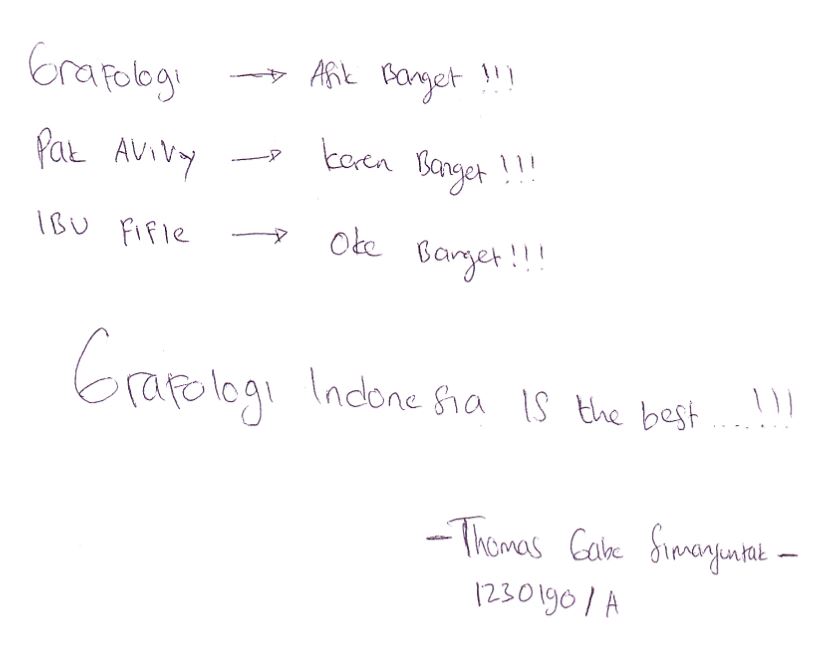 Grafologi → Asik Banget !!!
Pak AViVy → keren Banget !!!
IBU FiFie → Oke Banget !!!
Grafologi Indonesia IS the best .....!!!
- Thomas Gabe Simanjuntak -
1230190 / A